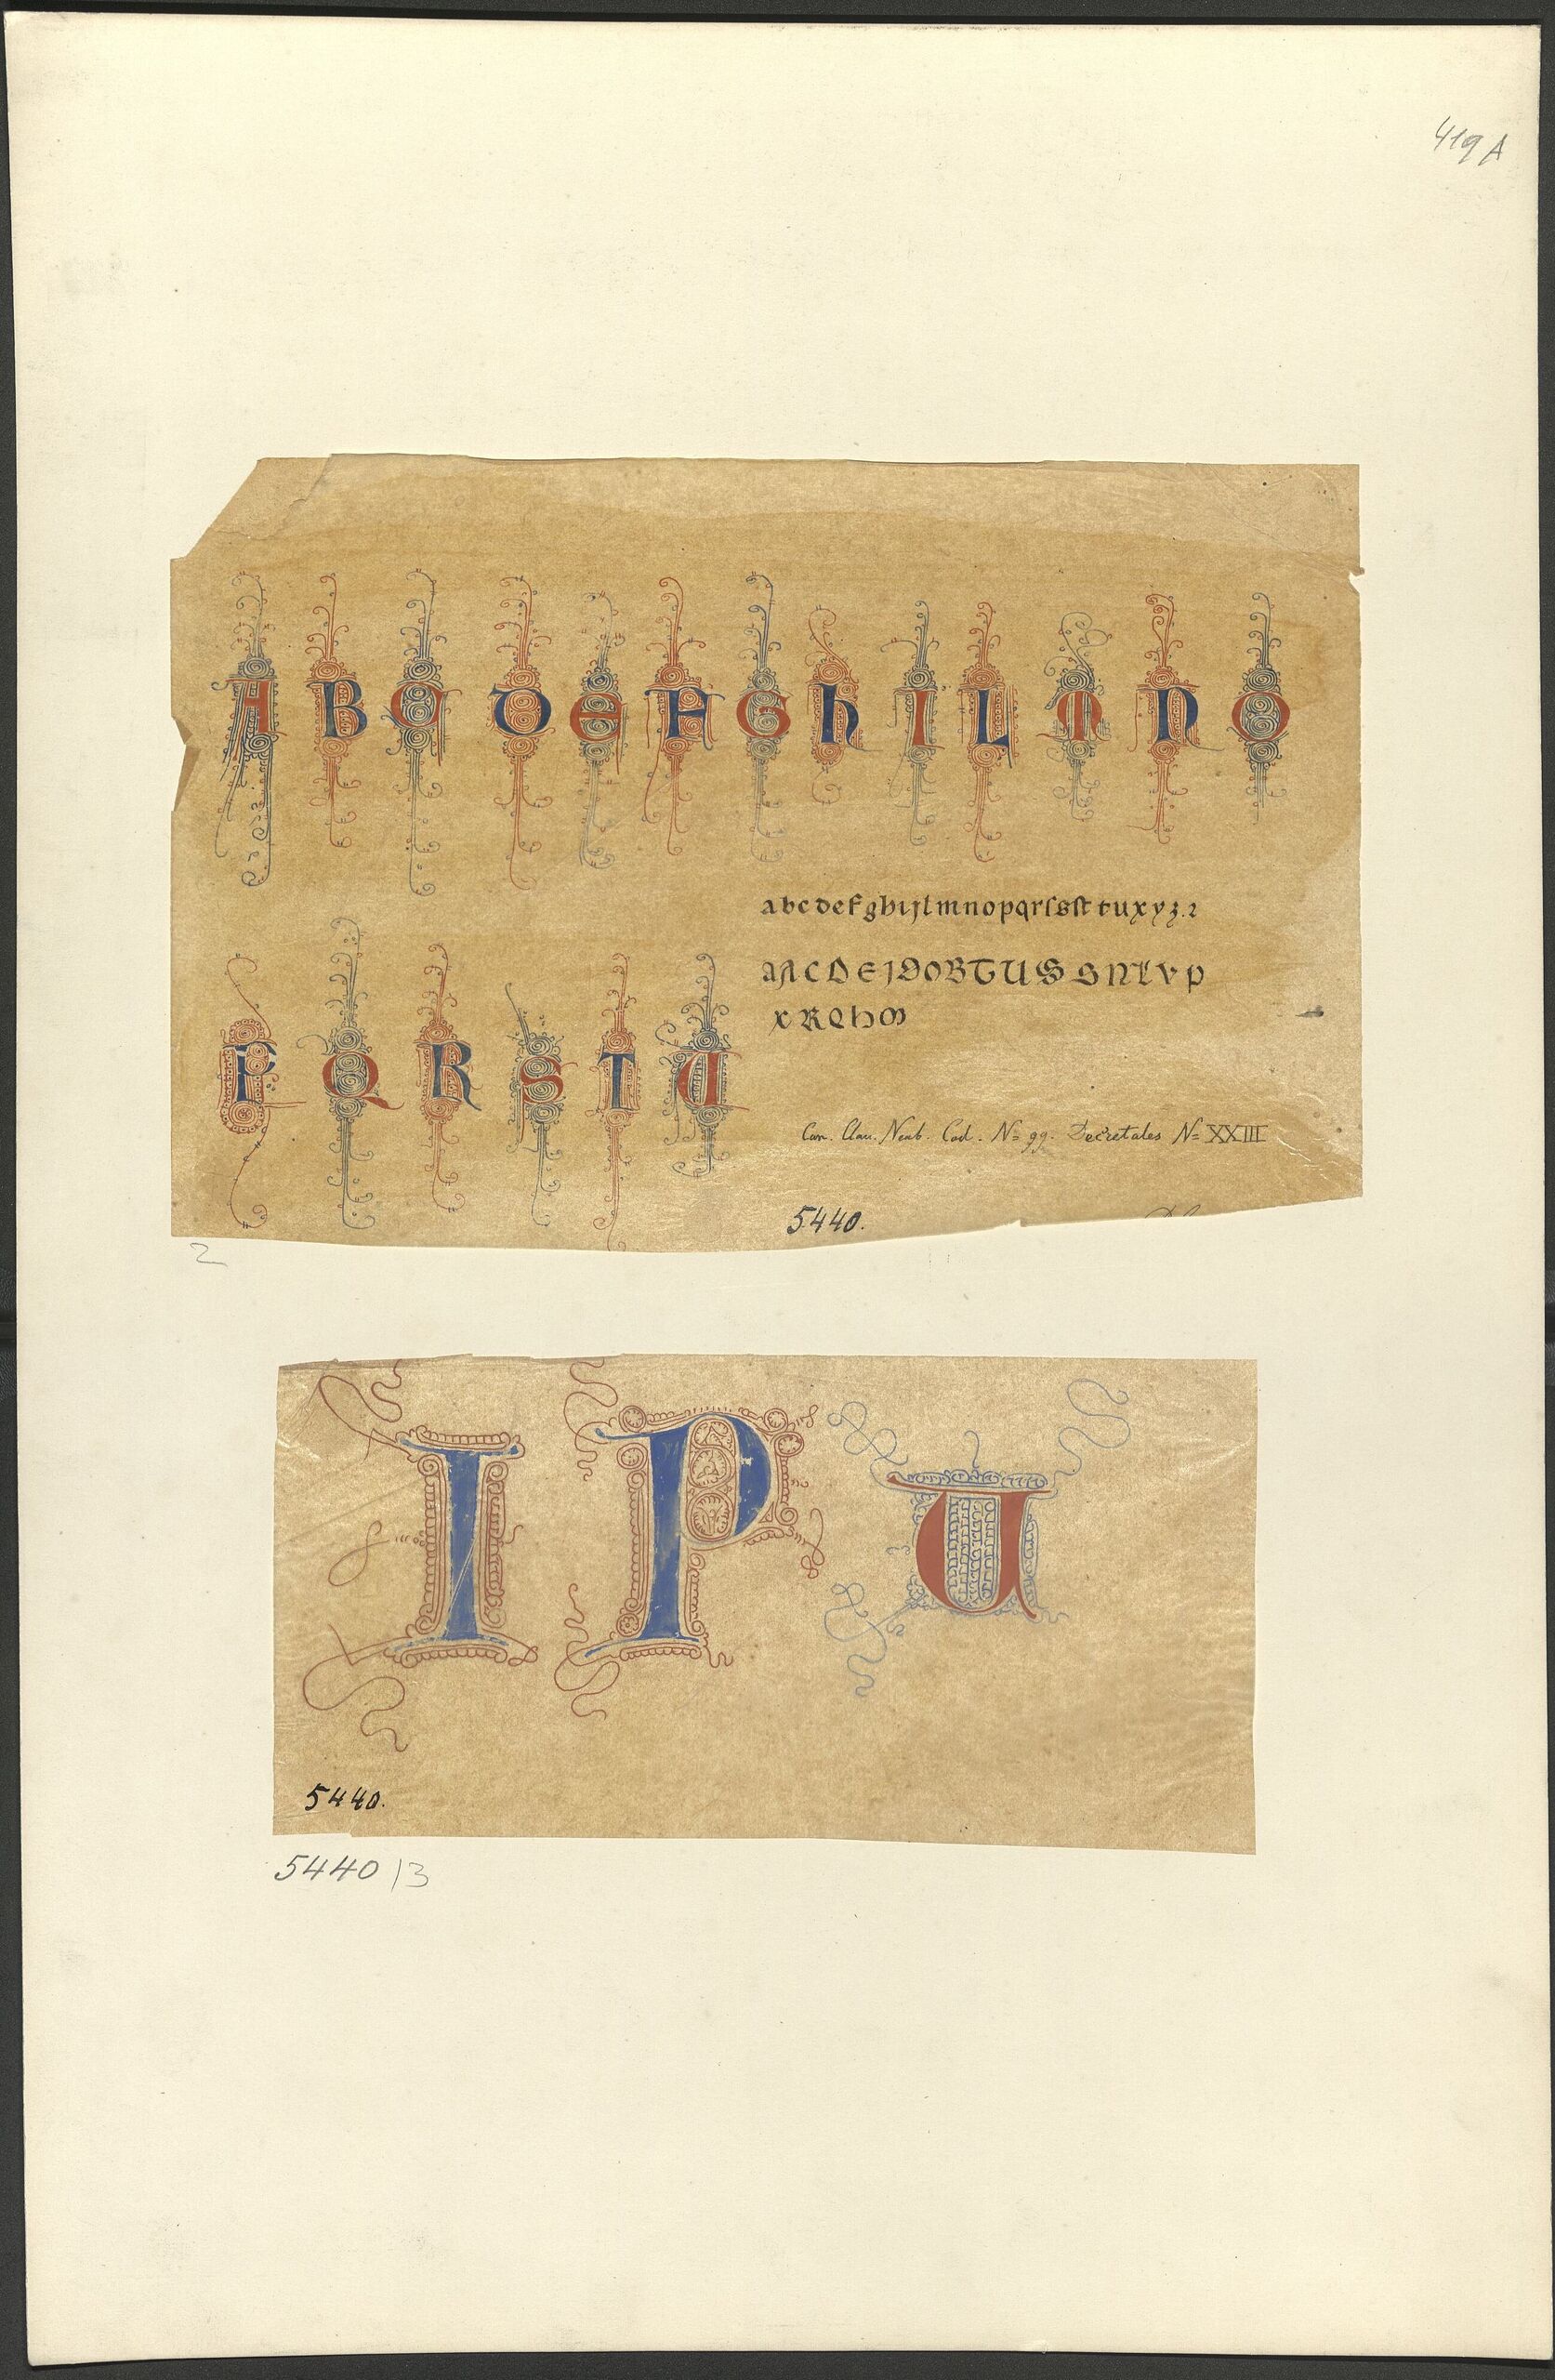 419 A
A B C D E F G h I L M N O
abcdefghijlmnopqrſsſt tuxyz.2
P Q R S T U
aACDEJDOBTUSSGNLVP
XRQhM
Can. Clau. Neub. Cod. N= 99. Decretales N= XXIII
5440.
2
I P U
5440.
5440/3